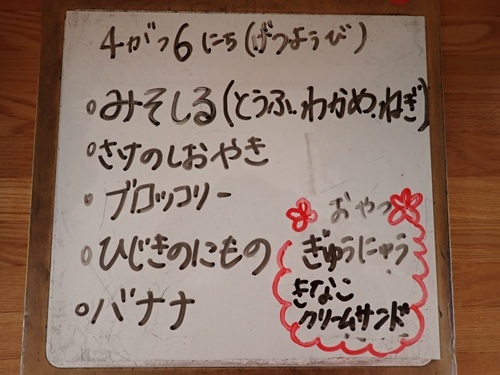 4がつ6にち(げつようび)
。みそしる(とうふ、わかめ、ねぎ)
。さけのしおやき
。ブロッコリー
。ひじきのにもの
。バナナ
おやつ
ぎゅうにゅう
きなこ
クリームサンド